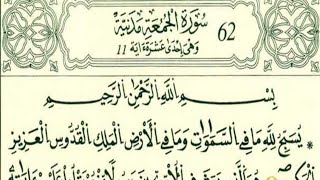 62
سُورَةُ الْجُمُعَةِ مَدَنِيَّة
وَهِيَ اِحْدٰى عَشَرَةَ اٰيَة 11
بِسْمِ اللّٰهِ الرَّحْمٰنِ الرَّحِيمِ
يُسَبِّحُ لِلّٰهِ مَا فِي السَّمٰوٰتِ وَمَا فِي الْأَرْضِ الْمَلِكِ الْقُدُّوسِ الْعَزِيزِ